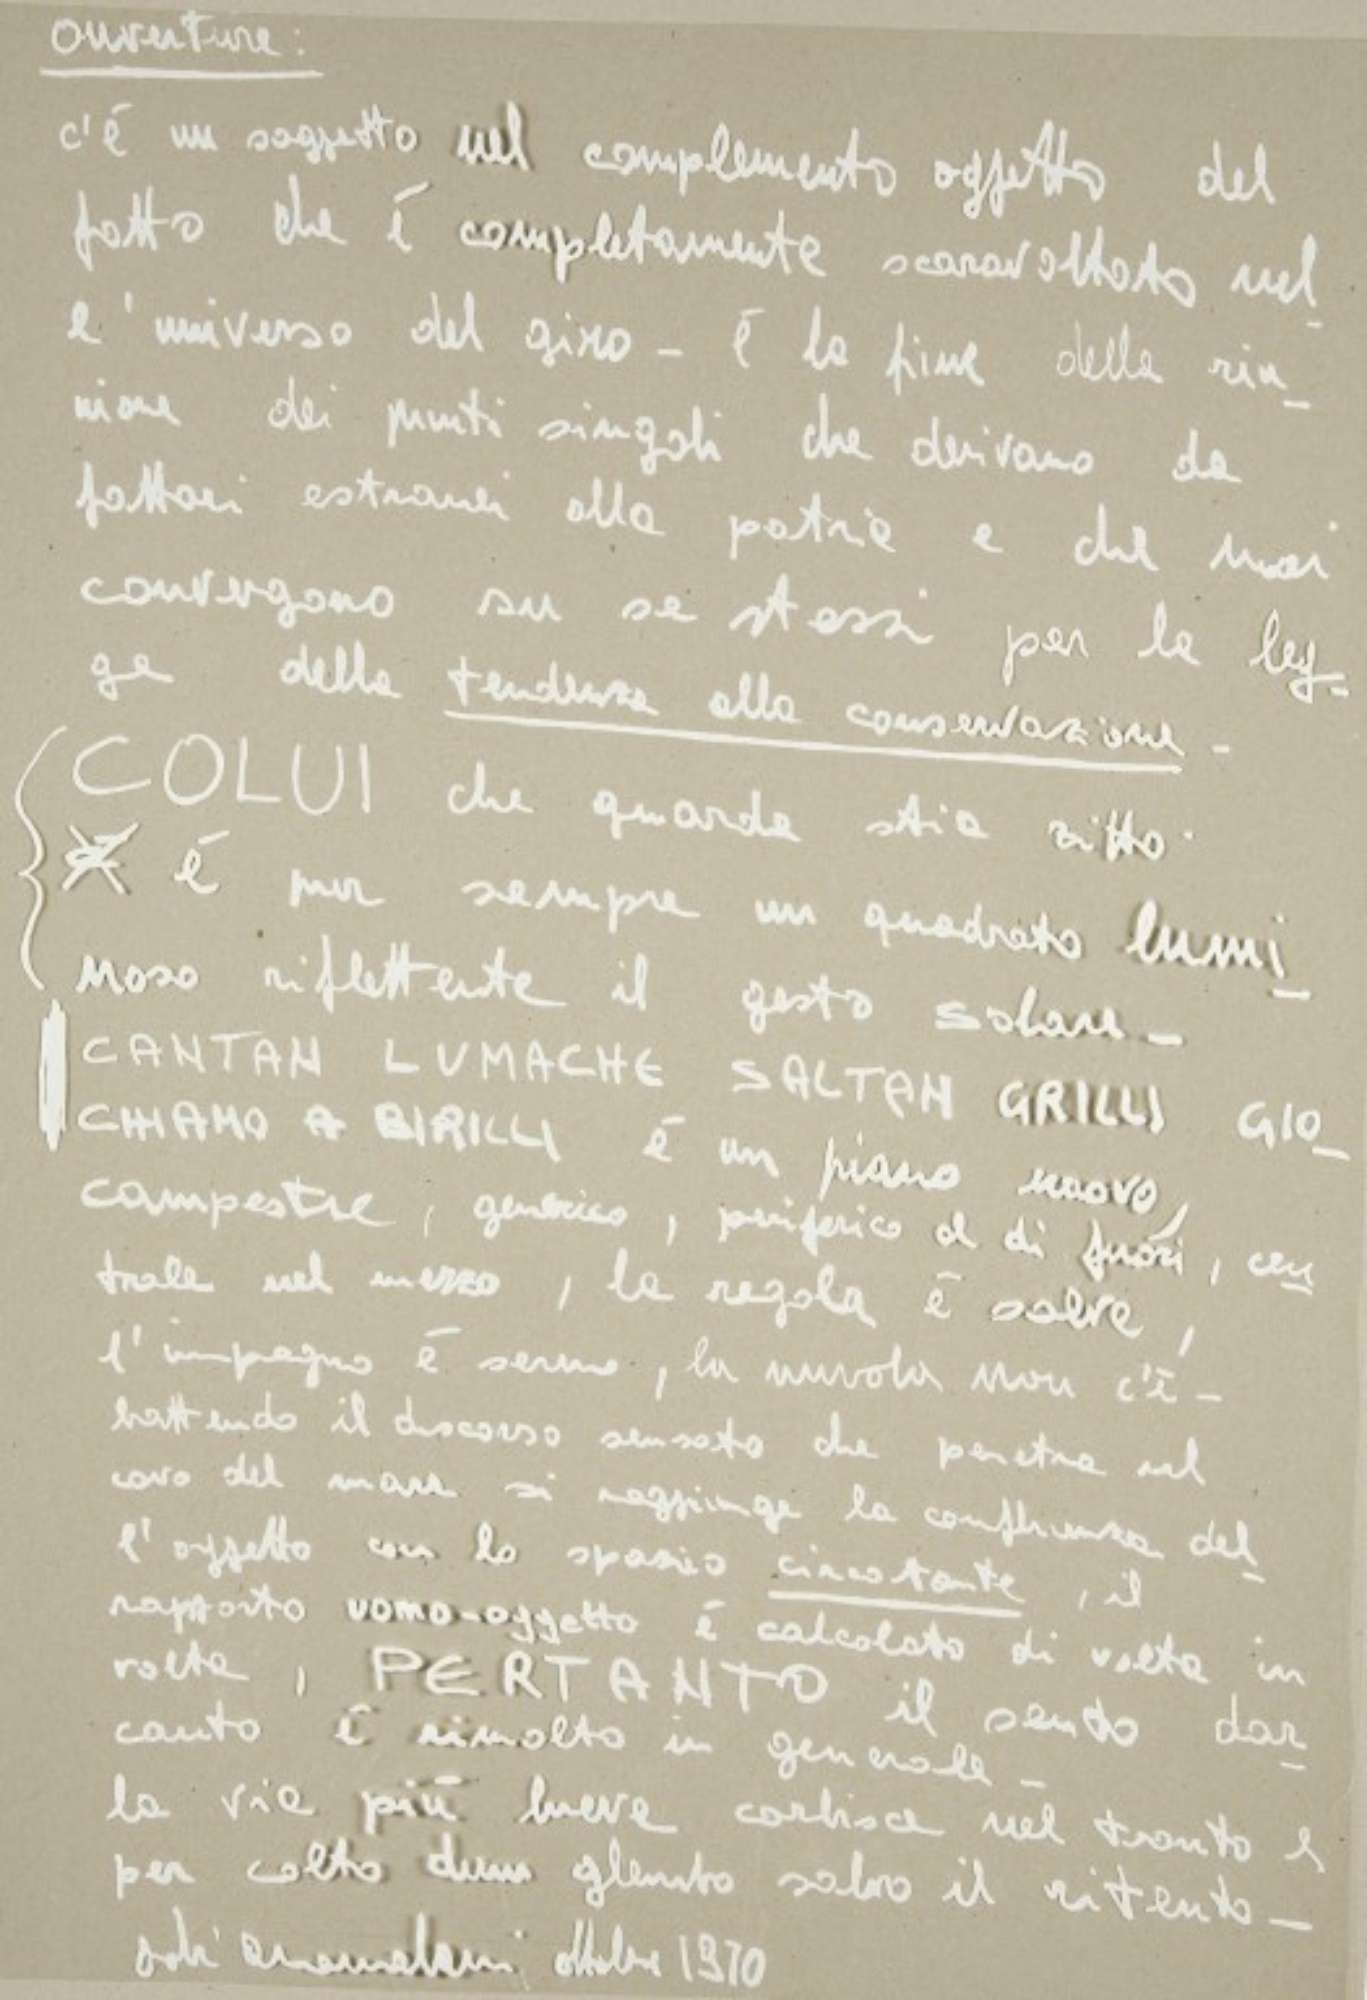 ouverture:
c'è un soggetto nel complemento oggetto del
fatto che è completamente scaravoltato nel_
l'universo del giro - è la fine della riu_
nione dei punti singoli che derivano da
fattori estranei alla patria e che mai
convergono su se stessi per la leg-
ge della tendenza alla conservazione -
COLUI che guarda stia zitto.
è pur sempre un quadrato lumi_
noso riflettente il gesto solare_
CANTAN LUMACHE SALTAN GRILLI GIO_
CHIAMO A BIRILLI è un piano nuovo,
campestre, generico, periferico al di fuori, cen_
trale nel mezzo, la regola è salve,
l'impegno è sereno, la nuvola non c'è -
battendo il discorso sensato che penetra nel
cavo del mare si raggiunge la confluenza del_
l'oggetto con lo spazio circostante, il
rapporto uomo-oggetto è calcolato di volta in
volta, PERTANTO il sento dar_
canto è rimolto in generale -
la via più breve carbisce nel tranto e
per colto dum glento salvo il ritento_
ottobre 1970